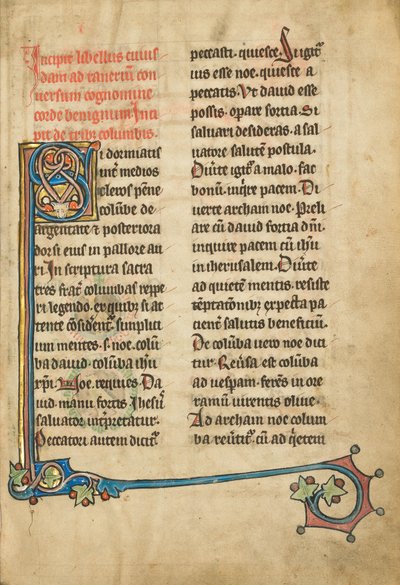 Incipit libellus cuius
dam ad raneriū con
uersum cognomine
corde benignum Inci
pit de tribꝰ columbis.
Si dormiatis
int͛ medios
cleros pēne
colūbe de
argentate et posteriora
dorsi eius in pallore au
ri. In scriptura sacra
tres frat͛ columbas reppe
ri legendo. ex quibꝰ si at
tente ꝯsident᷑ simplici
um mentes .s. noe colū
ba dauid colūba ih̄u
xp̄i. Noe requies. Da
uid manu fortis. Ihesꝰ
saluator int͛pretatur.
Peccatori autem dicit᷑
peccasti. quiesce. Si igit᷑
uis esse noe. quiesce a
peccatis. Ut dauid esse
possis. opare fortia. Si
saluari desideras. a sal
uatore salutem postula.
Diu͛te igit᷑ a malo. fac
bonū. inq̇re pacem. Di
uerte archam noe. Preli
are cū dauid fortia dn̄i.
inquire pacem cū ih̄u
in iherusalem. Diu͛te
ad quietem mentis. resiste
temptatōnibꝰ. expecta pa
cient͛ salutis beneficiū.
De colūba uero noe dici
tur. Reu͛sa est colūba
ad uesperam. ferēs in ore
ramū uirentis oliue.
Ad archam noe colum
ba reu͛tit᷑. cū ad q̇etem